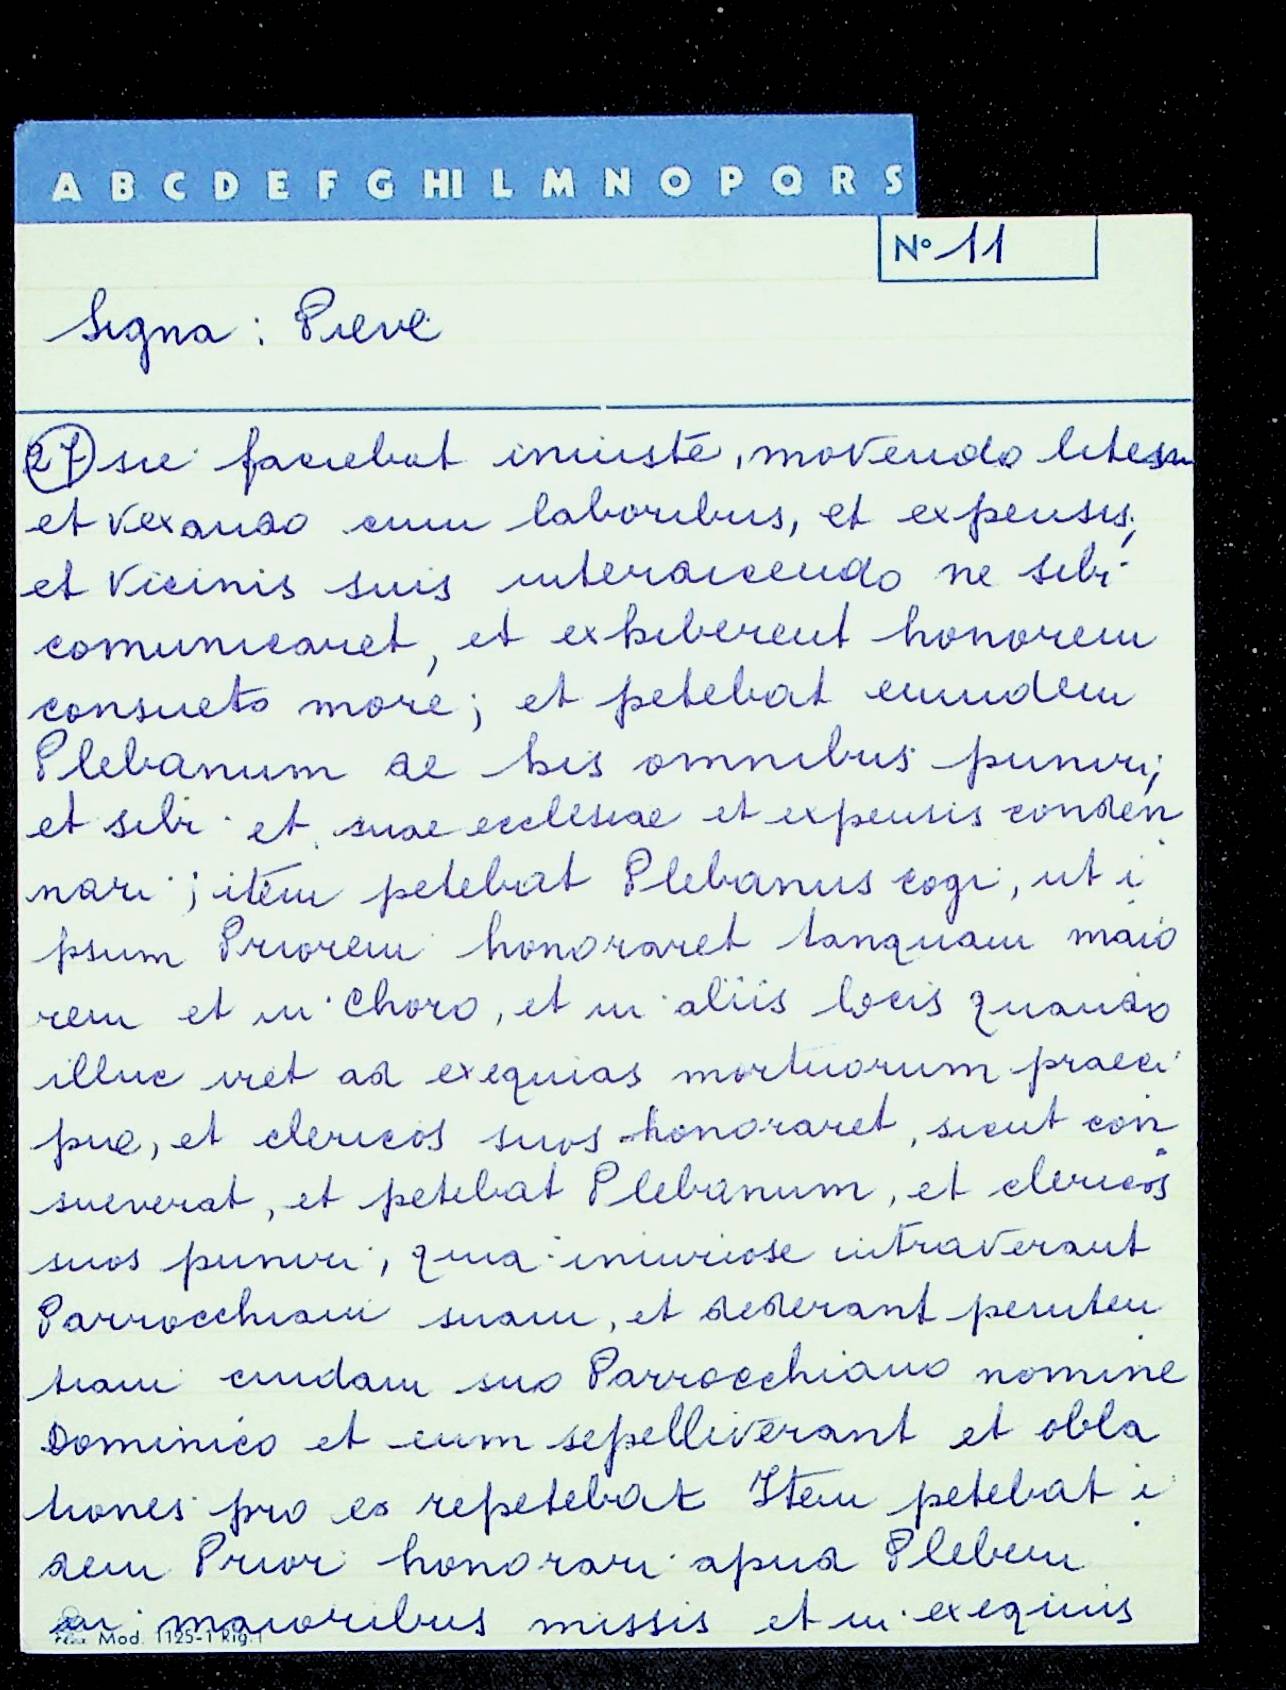 A B C D E F G HI L M N O P Q R S
N° 11
Signa : Pieve
27 sic faciebat iniuste, movendo litem
et vexando cum laboribus, et expensis,
et vicinis suis interdicendo ne sibi
comunicaret, et exhiberent honorem
consueto more; et petebat eumdem
Plebanum de his omnibus puniri;
et sibi et suae ecclesiae et expensis conden
nari; item petebat Plebanus cogi, ut i
psum Priorem honoraret tanquam maio
rem et in Choro, et in aliis locis quando
illuc iret ad exequias mortuorum praeci
pue, et clericos suos honoraret, sicut con
sueverat, et petebat Plebanum, et clericos
suos puniri, quia iniuriose intraverant
Parrocchiam suam, et dederant peniten
tiam cuidam suo Parrocchiano nomine
Dominico et eum sepelliverant et obla
tiones pro eo repetebat Item petebat i
dem Prior honorari apud Plebem
in maioribus missis et in exequiis
Mod. 1125-1 Rig.1